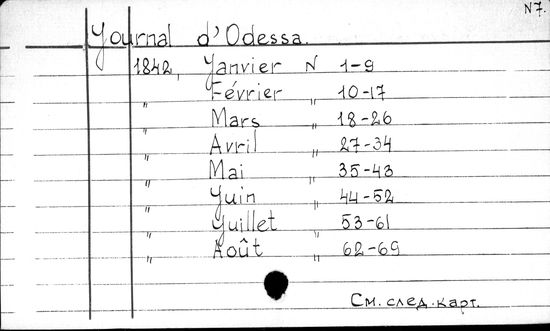 N7.
Journal d'Odessa.
1842, Janvier N 1-9
" Février " 10-17
" Mars " 18-26
" Avril " 27-34
" Mai " 35-43
" Juin " 44-52
" Juillet " 53-61
" Août " 62-69
См. след. карт.